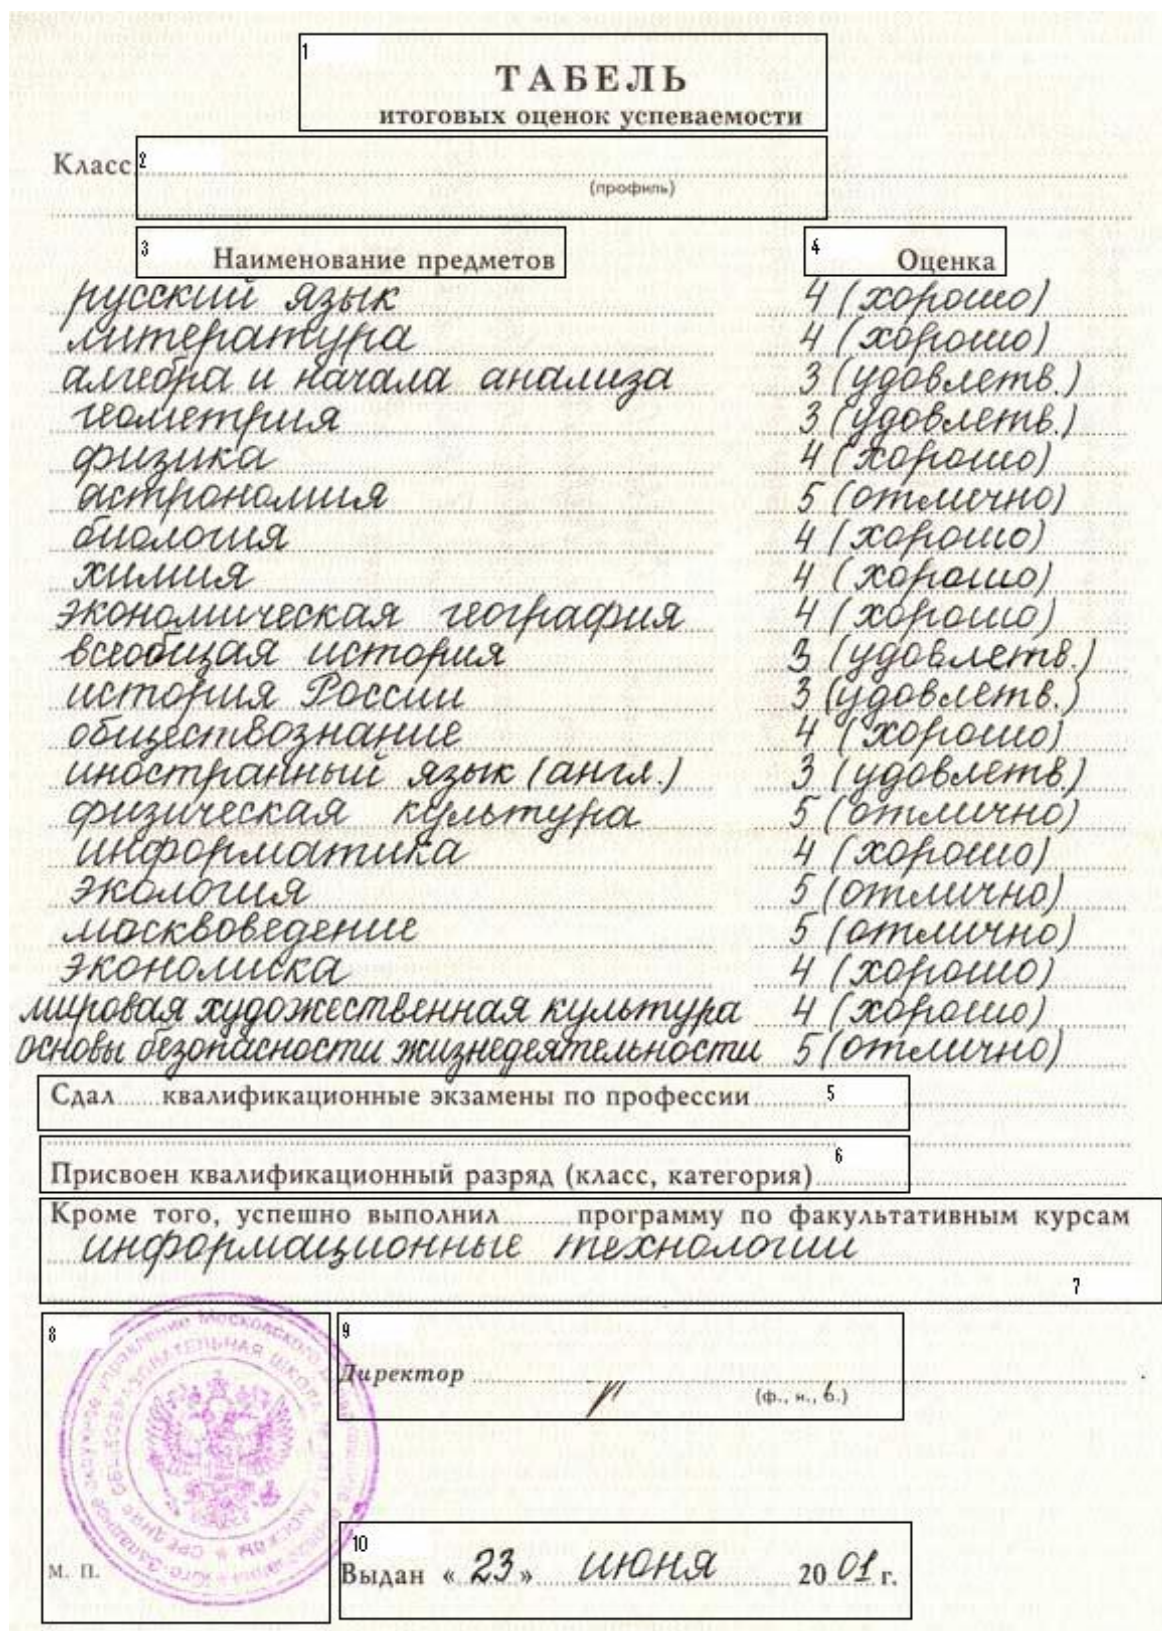 1
ТАБЕЛЬ
итоговых оценок успеваемости
Класс 2
(профиль)
3 Наименование предметов 4 Оценка
русский язык 4 (хорошо)
литература 4 (хорошо)
алгебра и начала анализа 3 (удовлетв.)
геометрия 3 (удовлетв.)
физика 4 (хорошо)
астрономия 5 (отлично)
биология 4 (хорошо)
химия 4 (хорошо)
экономическая география 4 (хорошо)
всеобщая история 3 (удовлетв.)
история России 3 (удовлетв.)
обществознание 4 (хорошо)
иностранный язык (англ.) 3 (удовлетв.)
физическая культура 5 (отлично)
информатика 4 (хорошо)
экология 5 (отлично)
москвоведение 5 (отлично)
экономика 4 (хорошо)
мировая художественная культура 4 (хорошо)
основы безопасности жизнедеятельности 5 (отлично)
Сдал......квалификационные экзамены по профессии 5
6
Присвоен квалификационный разряд (класс, категория)
Кроме того, успешно выполнил......... программу по факультативным курсам
информационные технологии
7
8 9
Директор
(ф., и., о.)
10
М. П. Выдан « 23 » июня 20 01 г.